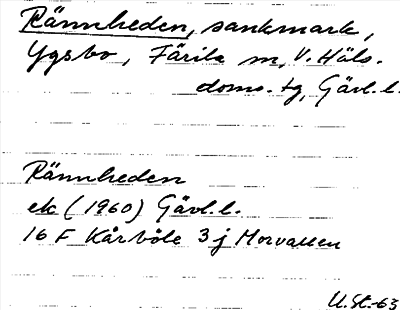 Rännheden, sankmark,
Ygsbo, Färila sn, V. Häls.
doms. tg, Gävl. l.
Rännheden
ek (1960) Gävl. l.
16 F Kårböle 3 j Morvallen
U.St.-63